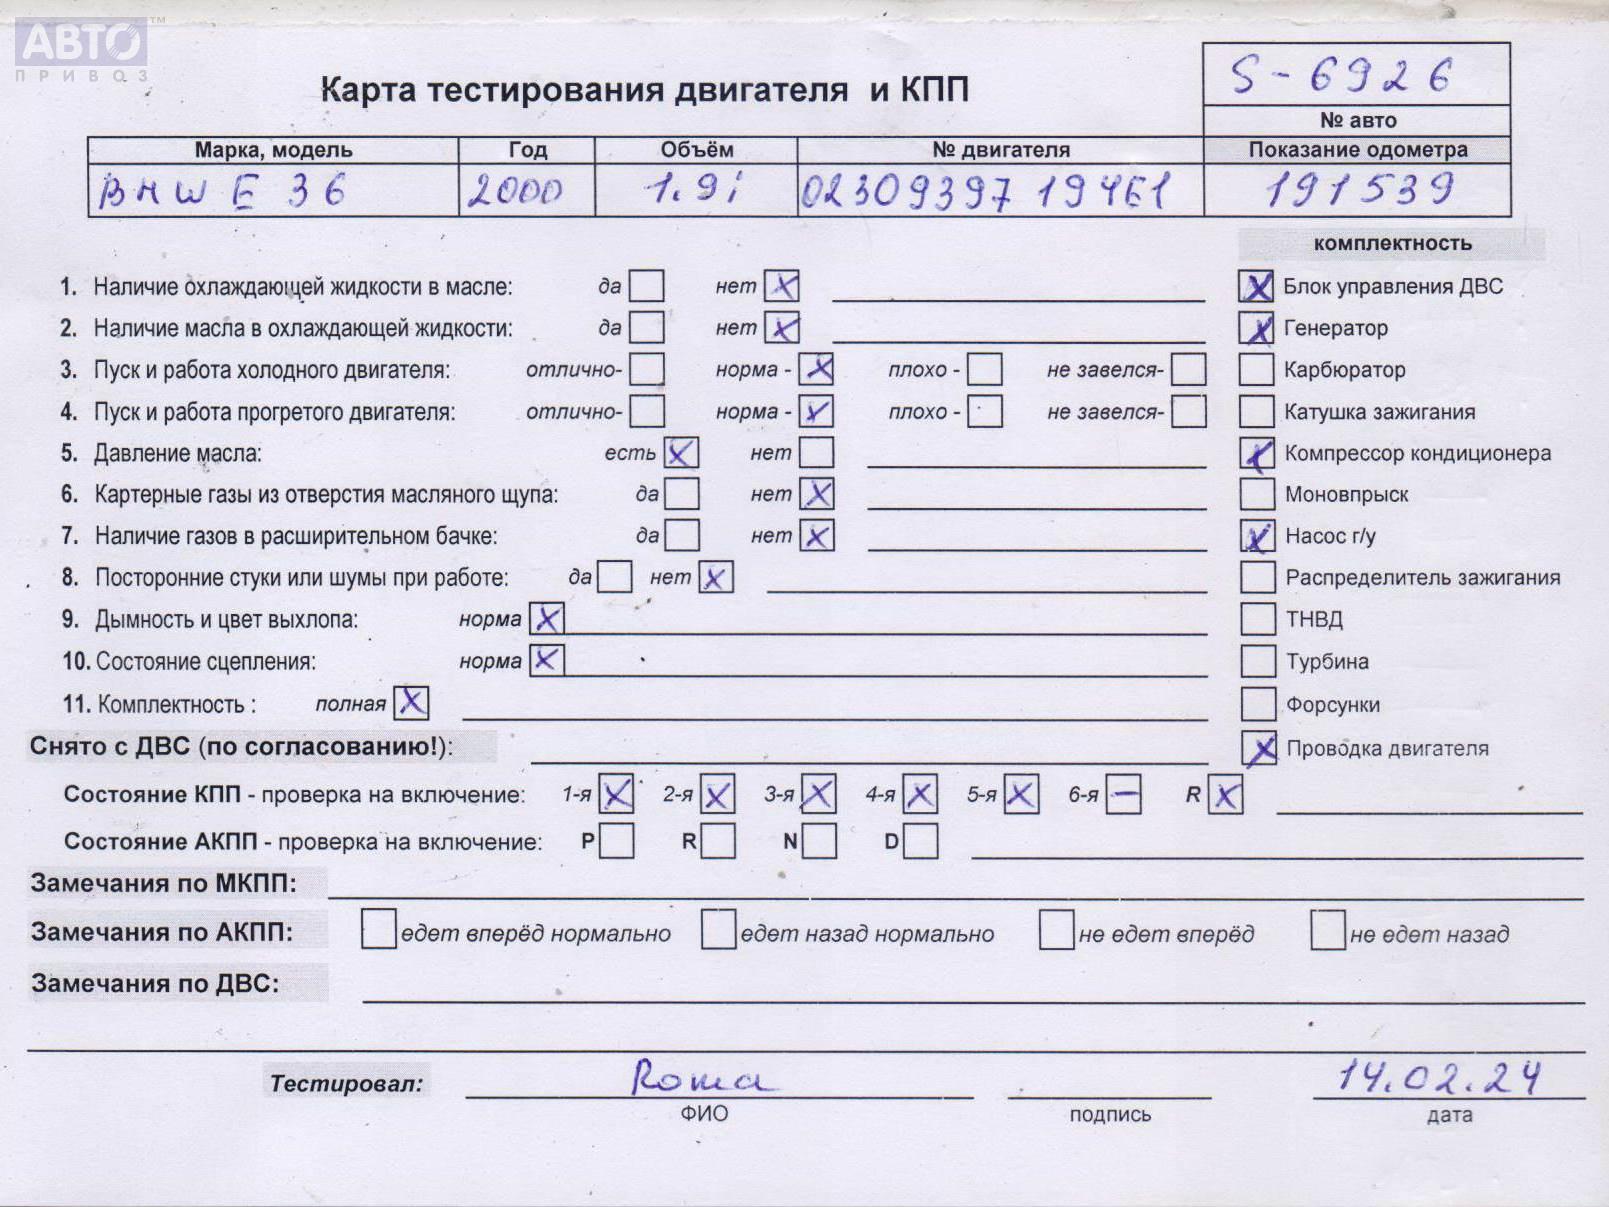 АВТО™
ПРИВОЗ
S-6926
Карта тестирования двигателя и КПП
№ авто
Марка, модель Год Объём № двигателя Показание одометра
BMW E 36 2000 1.9i 02309397 194E1 191539
комплектность
1. Наличие охлаждающей жидкости в масле: да нет X X Блок управления ДВС
2. Наличие масла в охлаждающей жидкости: да нет X X Генератор
3. Пуск и работа холодного двигателя: отлично- норма - X плохо - не завелся- Карбюратор
4. Пуск и работа прогретого двигателя: отлично- норма - X плохо - не завелся- Катушка зажигания
5. Давление масла: есть X нет X Компрессор кондиционера
6. Картерные газы из отверстия масляного щупа: да нет X Моновпрыск
7. Наличие газов в расширительном бачке: да нет X X Насос г/у
8. Посторонние стуки или шумы при работе: да нет X Распределитель зажигания
9. Дымность и цвет выхлопа: норма X ТНВД
10. Состояние сцепления: норма X Турбина
11. Комплектность : полная X Форсунки
Снято с ДВС (по согласованию!): X Проводка двигателя
Состояние КПП - проверка на включение: 1-я X 2-я X 3-я X 4-я X 5-я X 6-я – R X
Состояние АКПП - проверка на включение: P R N D
Замечания по МКПП:
Замечания по АКПП: едет вперёд нормально едет назад нормально не едет вперёд не едет назад
Замечания по ДВС:
Тестировал: Roma 14.02.24
ФИО подпись дата